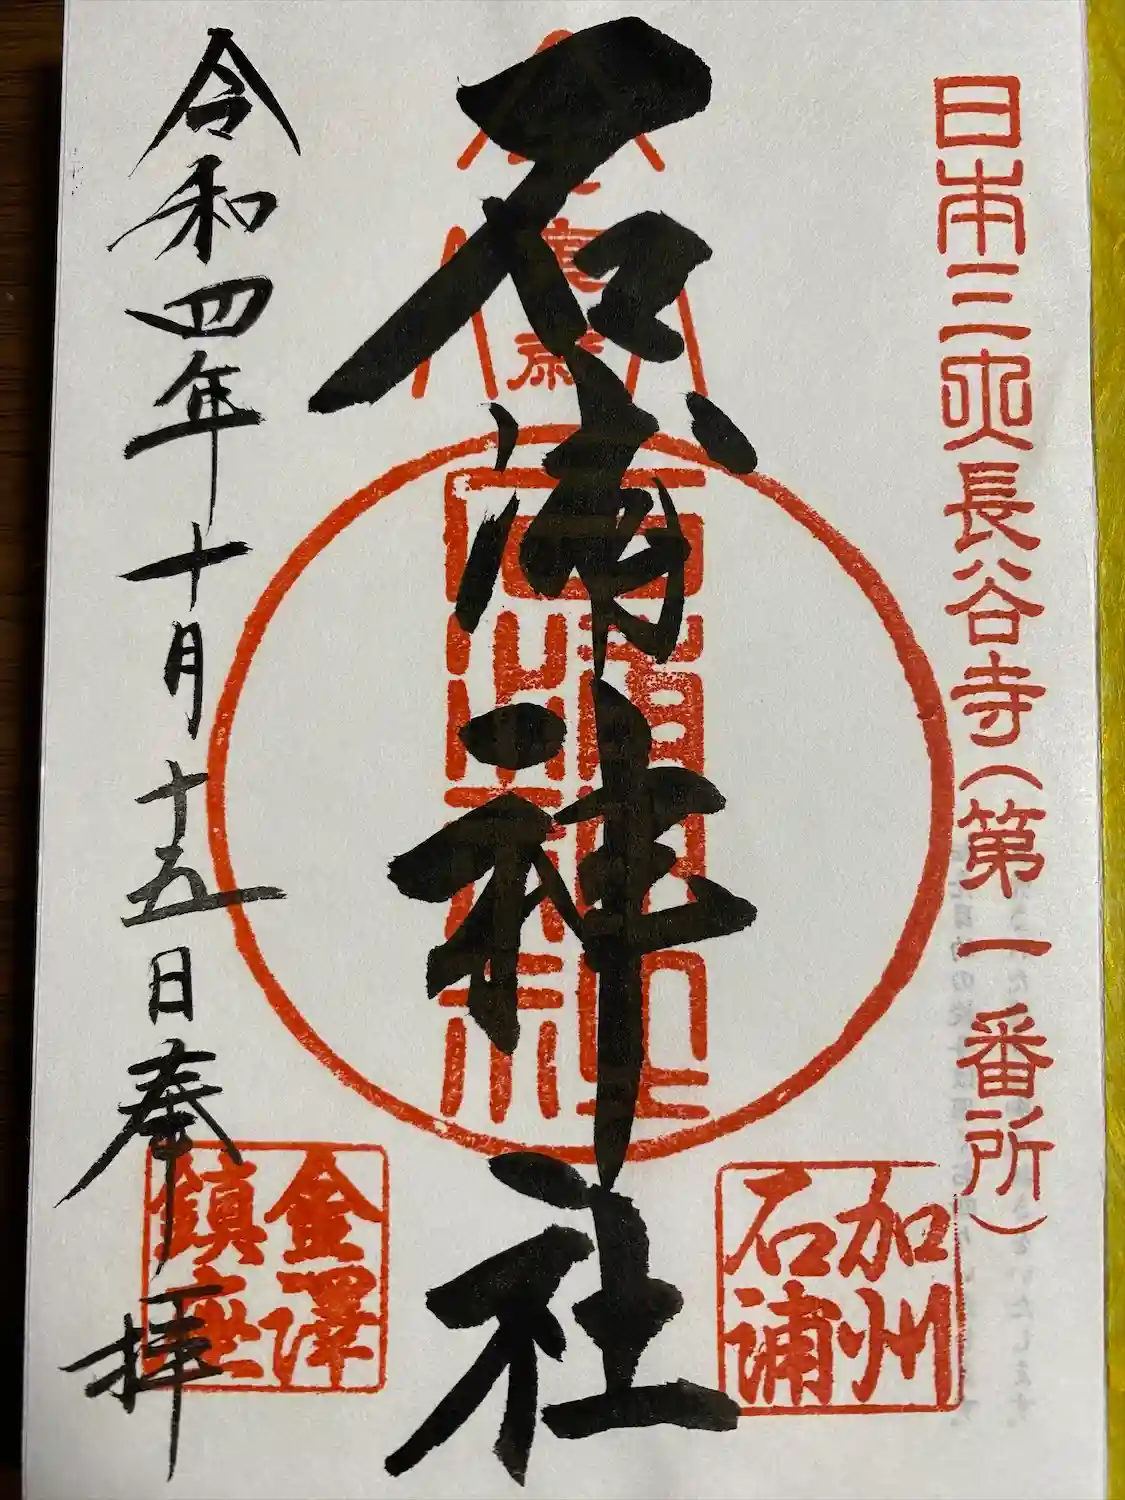 日本三央長谷寺（第一番所）
石浦神社
石浦神社
加州
石浦
金澤
鎮座
令和四年十月十五日奉拝